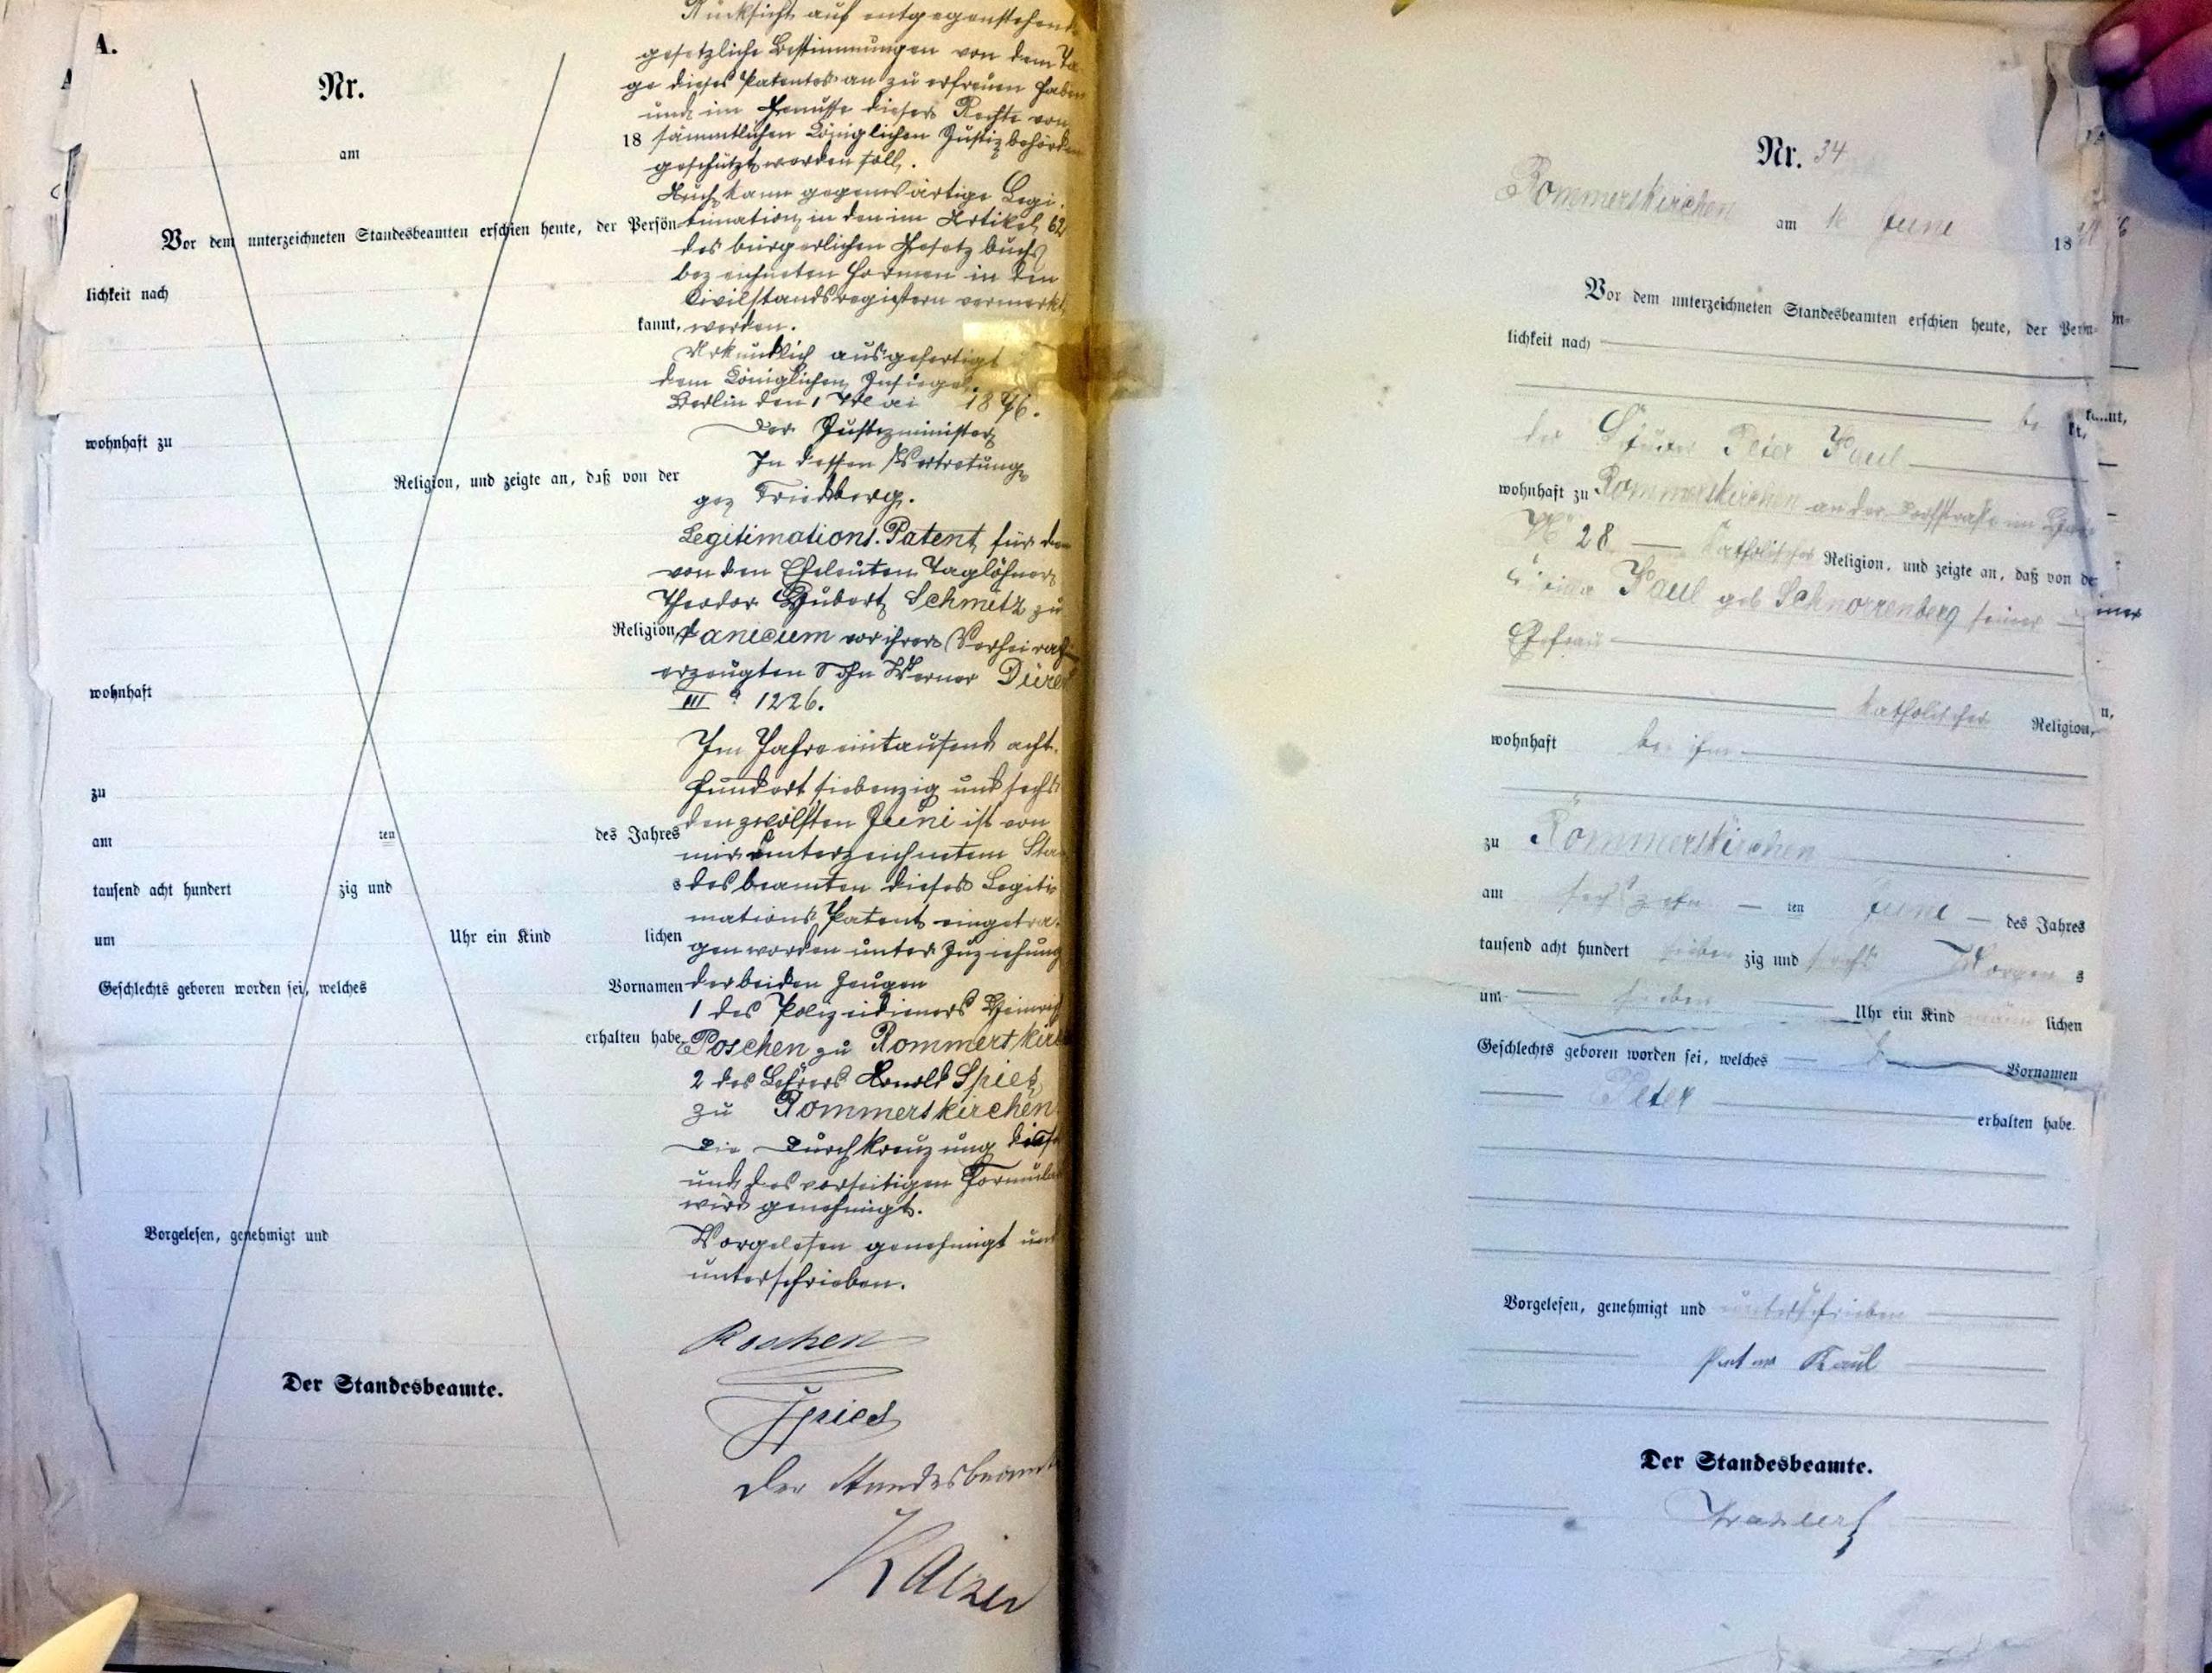 A.
Nr.
am
18
Vor dem unterzeichneten Standesbeamten erschien heute, der Persön
lichkeit nach
kannt,
wohnhaft zu
Religion, und zeigte an, daß von der
Religion,
wohnhaft
zu
am ten des Jahres
tausend acht hundert zig und s
um Uhr ein Kind lichen
Geschlechts geboren worden sei, welches Vornamen
erhalten habe.
Vorgelesen, genehmigt und
Der Standesbeamte.
Rücksicht auf entgegenstehende
gesetzliche Bestimmungen von dem Ta
ge dieses Patentes an zu erfreuen haben
und im Genusse dieser Rechte von
sämmtlichen Königlichen Justizbehörden
geschützt werden soll.
Auch kann gegenwärtige Legi-
timation in den im Artikel 62
des bürgerlichen Gesetzbuchs
bezeichneten Formen in den
Civilstandsregistern vermerkt
werden.
Urkundlich ausgefertigt
dem Königlichen Insiegel.
Berlin den 1 Mai 1876.
Der Justizminister
In dessen Vertretung
gez Friedberg.
Legitimations-Patent für den
von den Eheleuten Taglöhner
Theodor Hubert Schmitz zu
Vanicum vor ihrer Verheirat
erzeugten Sohn Werner
III 1226.
Im Jahre eintausend acht-
hundert siebenzig und sechs
den zwölften Juni ist von
mir unterzeichnetem Stan
desbeamten dieses Legiti
mations Patent eingetra-
gen worden unter Zuziehung
der beiden Zeugen
1 des Polizeidieners Heinrich
Poschen zu Rommerskirch
2 des Lehrers Arnold Spies
zu Rommerskirchen
Die Durchkreuzung dieses
und des vorseitigen Formular
wird genehmigt.
Vorgelesen genehmigt und
unterschrieben.
Poschen
Spies
Der Standesbeamte
Nr. 34
Rommerskirchen am 16 Juni 18
Vor dem unterzeichneten Standesbeamten erschien heute, der Persön-
lichkeit nach
be kannt,
der Peter Paul
wohnhaft zu Rommerskirchen an der im
No 28 katholischer Religion, und zeigte an, daß von der
Paul geb Schnorrenberg seiner
Ehefrau
katholischer Religion,
wohnhaft bei ihm
zu Rommerskirchen
am sechszehn ten Juni des Jahres
tausend acht hundert sieben zig und sechs Morgen s
um sieben Uhr ein Kind männ lichen
Geschlechts geboren worden sei, welches Vornamen
Peter erhalten habe.
Vorgelesen, genehmigt und unterschrieben
Peter Paul
Der Standesbeamte.